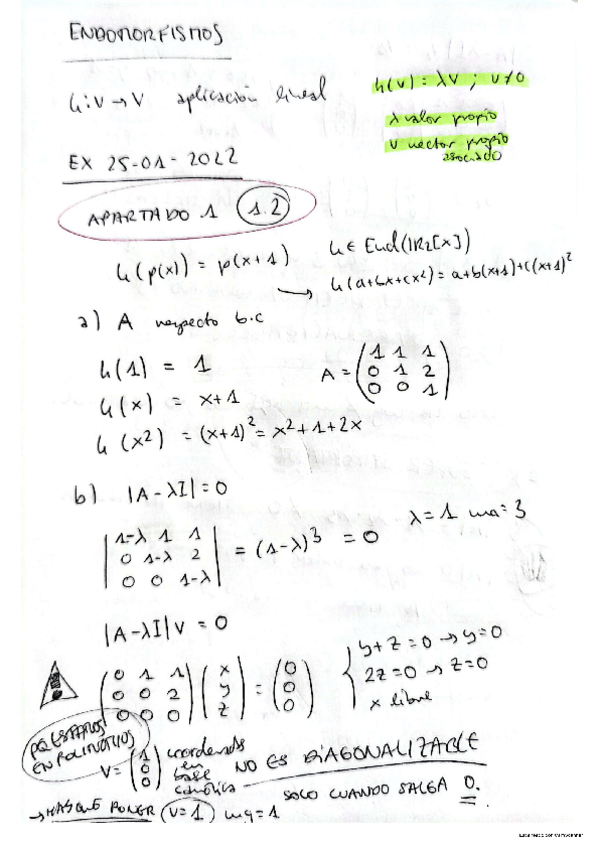 ENDOMORFISMOS
h: V → V aplicación lineal
h(v) = λv ; v≠0
λ valor propio
v vector propio
asociado
EX 25-01-2022
APARTADO 1 1.2
h(p(x)) = p(x+1) h ∈ End(IR₂[x])
→ h(a+bx+cx²) = a+b(x+1)+c(x+1)²
a) A respecto b.c
h(1) = 1
h(x) = x+1
h(x²) = (x+1)² = x²+1+2x
A = ( 1 1 1
0 1 2
0 0 1 )
b) |A-λI| = 0
| 1-λ 1 1
0 1-λ 2
0 0 1-λ | = (1-λ)³ = 0
λ=1 ma=3
|A-λI| v = 0
( 0 1 1
0 0 2
0 0 0 ) ( x
y
z ) = ( 0
0
0 )
{ y+z=0 → y=0
2z=0 → z=0
x libre
PQ ESTAMOS
EN POLINOMIOS
V = ( 1
0
0 ) coordenadas
en
base
canónica
NO ES DIAGONALIZABLE
SOLO CUANDO SALGA 0.
→ HAY QUE PONER V=1 mg=1